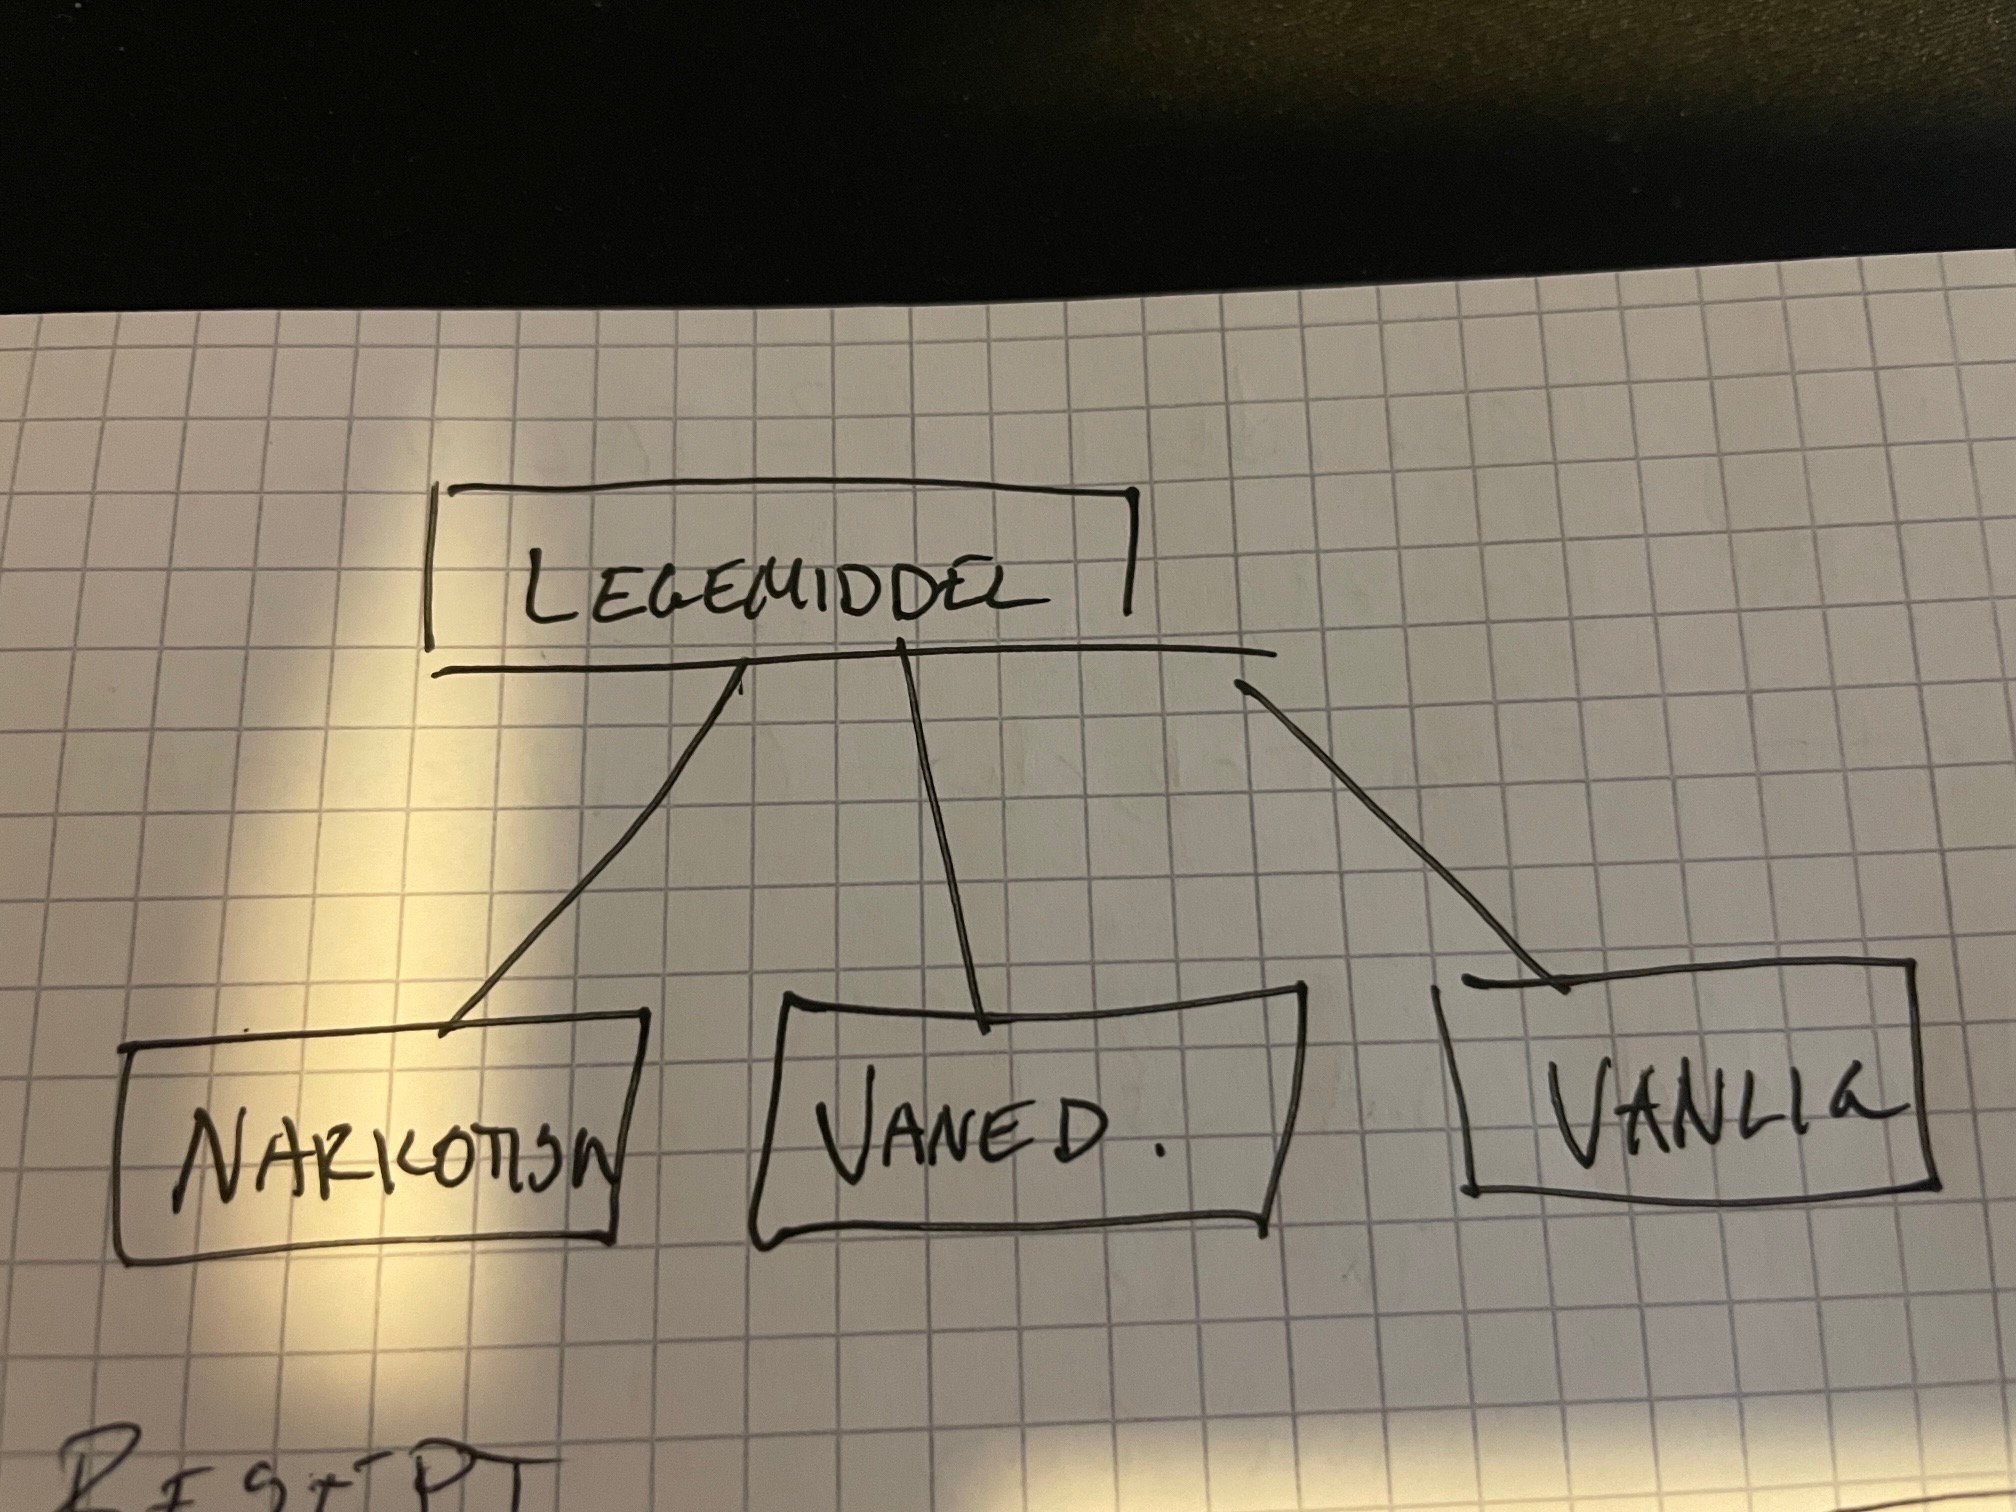 LEGEMIDDEL
NARKOTISK
VANED.
VANLIG
RESEPT